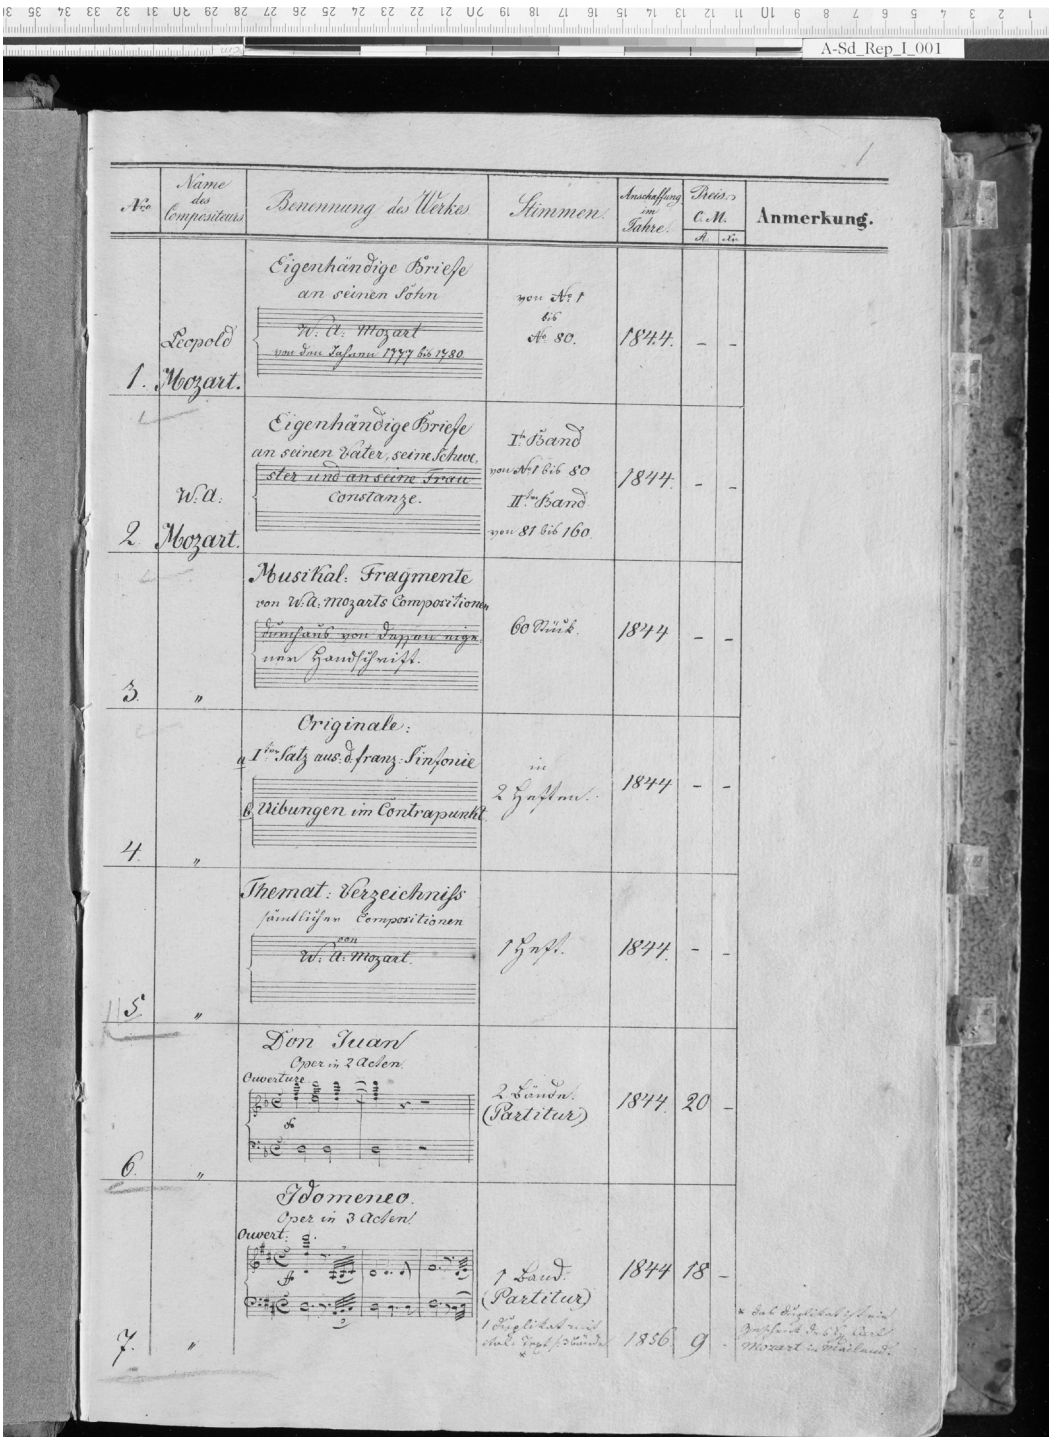 35 34 33 32 31 30 29 28 27 26 25 24 23 22 21 20 19 18 17 16 15 14 13 12 11 10 9 8 7 6 5 4 3 2 1
cm
A-Sd_Rep_I_001
1
Nro
Name
des
Compositeurs
Benennung des Werkes
Stimmen.
Anschaffung
im
Jahre.
Preis.
C. M.
fl.
Xr.
Anmerkung.
Eigenhändige Briefe
an seinen Sohn
W: A: Mozart
von den Jahren 1777 bis 1780
von No 1
bis
No 80.
1844. - -
Leopold
1. Mozart.
Eigenhändige Briefe
an seinen Vater, seine Schwe,
ster und an seine Frau
Constanze.
Ir Band
von No 1 bis 80
IIter Band
von 81 bis 160
1844. - -
W. A:
2. Mozart.
Musikal: Fragmente
von W: A: Mozarts Compositionen
durchaus von dessen eige,
ner Handschrift.
60 Stück.
1844 - -
3. "
Originale:
a Iter Satz aus: d: franz: Sinfonie
b Uibungen im Contrapunkt
in
2 Heften.
1844 - -
4. "
Themat: Verzeichniss
sämtlicher Compositionen
von
W: A: Mozart.
1 Heft.
1844. - -
5. "
Don Juan
Oper in 2 Acten.
Ouverture
2 Bände.
(Partitur)
1844. 20 -
6. "
Idomeneo.
Oper in 3 Acten.
Ouvert:
1 Band.
(Partitur)
1844 18 -
1 Duplikat mit
ital: Text /: 3 Bände
*
1856 9 -
* Das Duplikat ist ein
Geschenk des H: Carl
Mozart in Mailand.
7. "